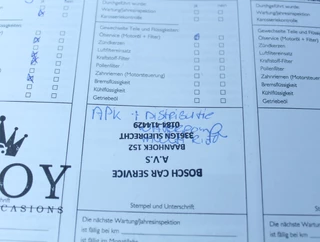 Durchgeführt wurde:
Wartung/Inspektion
Karosseriekontrolle
Gewechselte Teile und Flüssigkeiten:
Ölservice (Motoröl + Filter)
Zündkerzen
Luftfiltereinsatz
Kraftstoff-Filter
Pollenfilter
Zahnriemen (Motorsteuerung)
Bremsflüssigkeit
Kühlflüssigkeit
Getriebeöl
APK + Distributie
waterpomp
BOSCH CAR SERVICE
A.V.S
BAANHOEK 152
3361GN SLIEDRECHT
0184-414429
Stempel und Unterschrift
Die nächste Wartung/Jahresinspektion
ist fällig bei km
OY
CASIONS
Durchgeführt wurde:
Wartung/Inspektion
Karosseriekontrolle
Gewechselte Teile und Flüssig
Ölservice (Motoröl + Filter)
Zündkerzen
Luftfiltereinsatz
Kraftstoff-Filter
Pollenfilter
Zahnriemen (Motorsteuerung)
Bremsflüssigkeit
Kühlflüssigkeit
Getriebeöl
Stempel und
Die nächste Wartung/Jahresins
ist fällig bei km